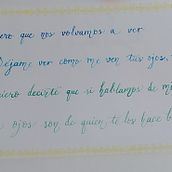 ero que nos volvamos a ver
Déjame ver como me ven tus ojos.
iero decirte que si hablamos de m
ojos son de quien te los hace b